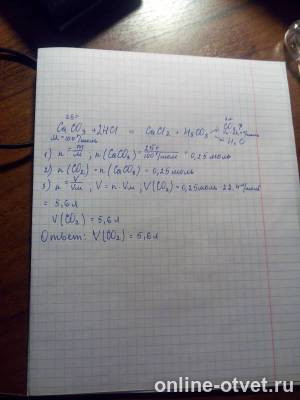 25г
CaCO3 + 2HCl = CaCl2 + H2CO3 CO2
H2O
M=100г/моль
1) n = m/M ; n(CaCO3) = 25г/100г/моль = 0,25 моль
2) n(CO2) = n(CaCO3) = 0,25 моль
3) n = V/Vm ; V = n · Vm ; V(CO2) = 0,25 моль · 22,4 л/моль
= 5,6 л
V(CO2) = 5,6 л
Ответ: V(CO2) = 5,6 л
online-otvet.ru